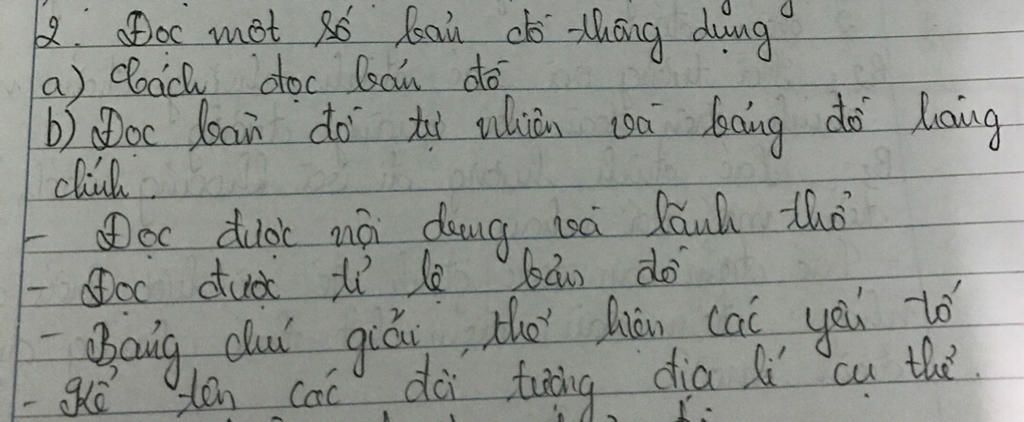 2. Đọc một số bản đồ thông dụng
a) Cách đọc bản đồ
b) Đọc bản đồ tự nhiên và bảng đồ hàng
chính.
- Đọc được nội dung và lãnh thổ
- Đọc được tỉ lệ bản đồ
- Bảng chú giải thể hiện các yếu tố
- Kể tên các đối tượng địa lí cụ thể.